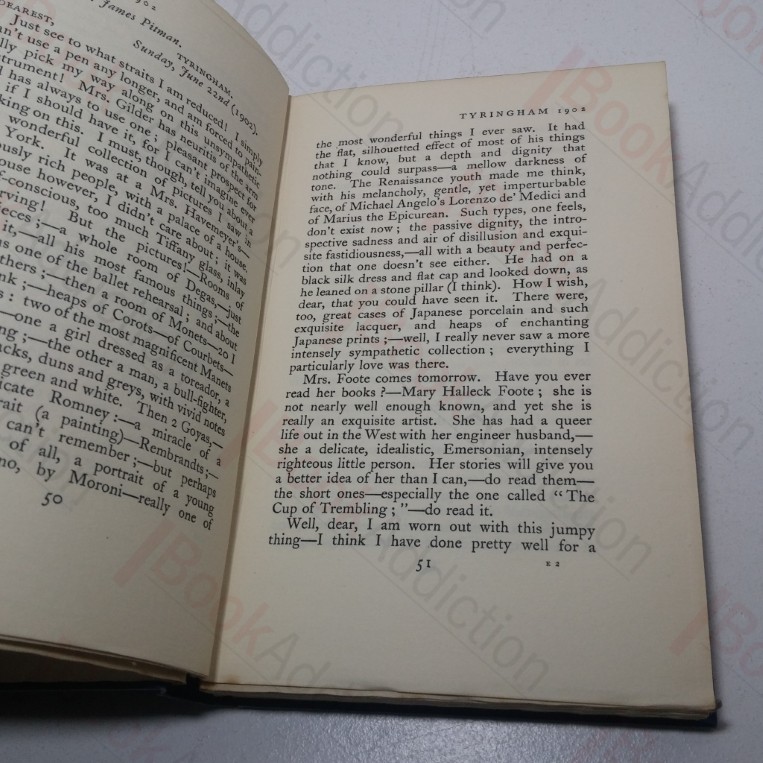 1902
James Pitman.
TYRINGHAM,
Sunday, June 22nd (1902).
DEAREST,
Just see to what straits I am reduced! I simply
can't use a pen any longer, and am forced to pain-
fully pick my way along on this unsympathetic
instrument! Mrs. Gilder has neuritis or the arm
has always to use one; pleasant prospect for
if I should have it, for I can't imagine ever
king on this. I must, though, tell you about a
wonderful collection of pictures I saw in
York. It was at a Mrs. Havemeyer's—
ously rich people, with a palace of a house.
ouse however, I didn't care about; it was
f-conscious, too much Tiffany glass, inlay
rying! But the pictures!—Rooms of
ieces;—a whole room of Degas,—just
it,—all his most famous things;—the
as one of the ballet rehearsal; and about
thers;—then a room of Monets—20 I
nk;—heaps of Corots—of Courbets—
s: two of the most magnificent Manets
—one a girl dressed as a toreador, a
ng;—the other a man, a bull-fighter,
acks, duns and greys, with vivid notes
green and white. Then 2 Goyas,—
icate Romney:—a miracle of a
rait (a painting)—Rembrandts;—
can't remember;—but perhaps
of all, a portrait of a young
no, by Moroni—really one of
50
TYRINGHAM 1902
the most wonderful things I ever saw. It had
the flat, silhouetted effect of most of his things
that I know, but a depth and dignity that
nothing could surpass—a mellow darkness of
tone. The Renaissance youth made me think,
with his melancholy, gentle, yet imperturbable
face, of Michael Angelo's Lorenzo de' Medici and
of Marius the Epicurean. Such types, one feels,
don't exist now; the passive dignity, the intro-
spective sadness and air of disillusion and exqui-
site fastidiousness,—all with a beauty and perfec-
tion that one doesn't see either. He had on a
black silk dress and flat cap and looked down, as
he leaned on a stone pillar (I think). How I wish,
dear, that you could have seen it. There were,
too, great cases of Japanese porcelain and such
exquisite lacquer, and heaps of enchanting
Japanese prints;—well, I really never saw a more
intensely sympathetic collection; everything I
particularly love was there.
Mrs. Foote comes tomorrow. Have you ever
read her books?—Mary Halleck Foote; she is
not nearly well enough known, and yet she is
really an exquisite artist. She has had a queer
life out in the West with her engineer husband,—
she a delicate, idealistic, Emersonian, intensely
righteous little person. Her stories will give you
a better idea of her than I can,—do read them—
the short ones—especially the one called "The
Cup of Trembling;"—do read it.
Well, dear, I am worn out with this jumpy
thing—I think I have done pretty well for a
51
E2
BookAddiction